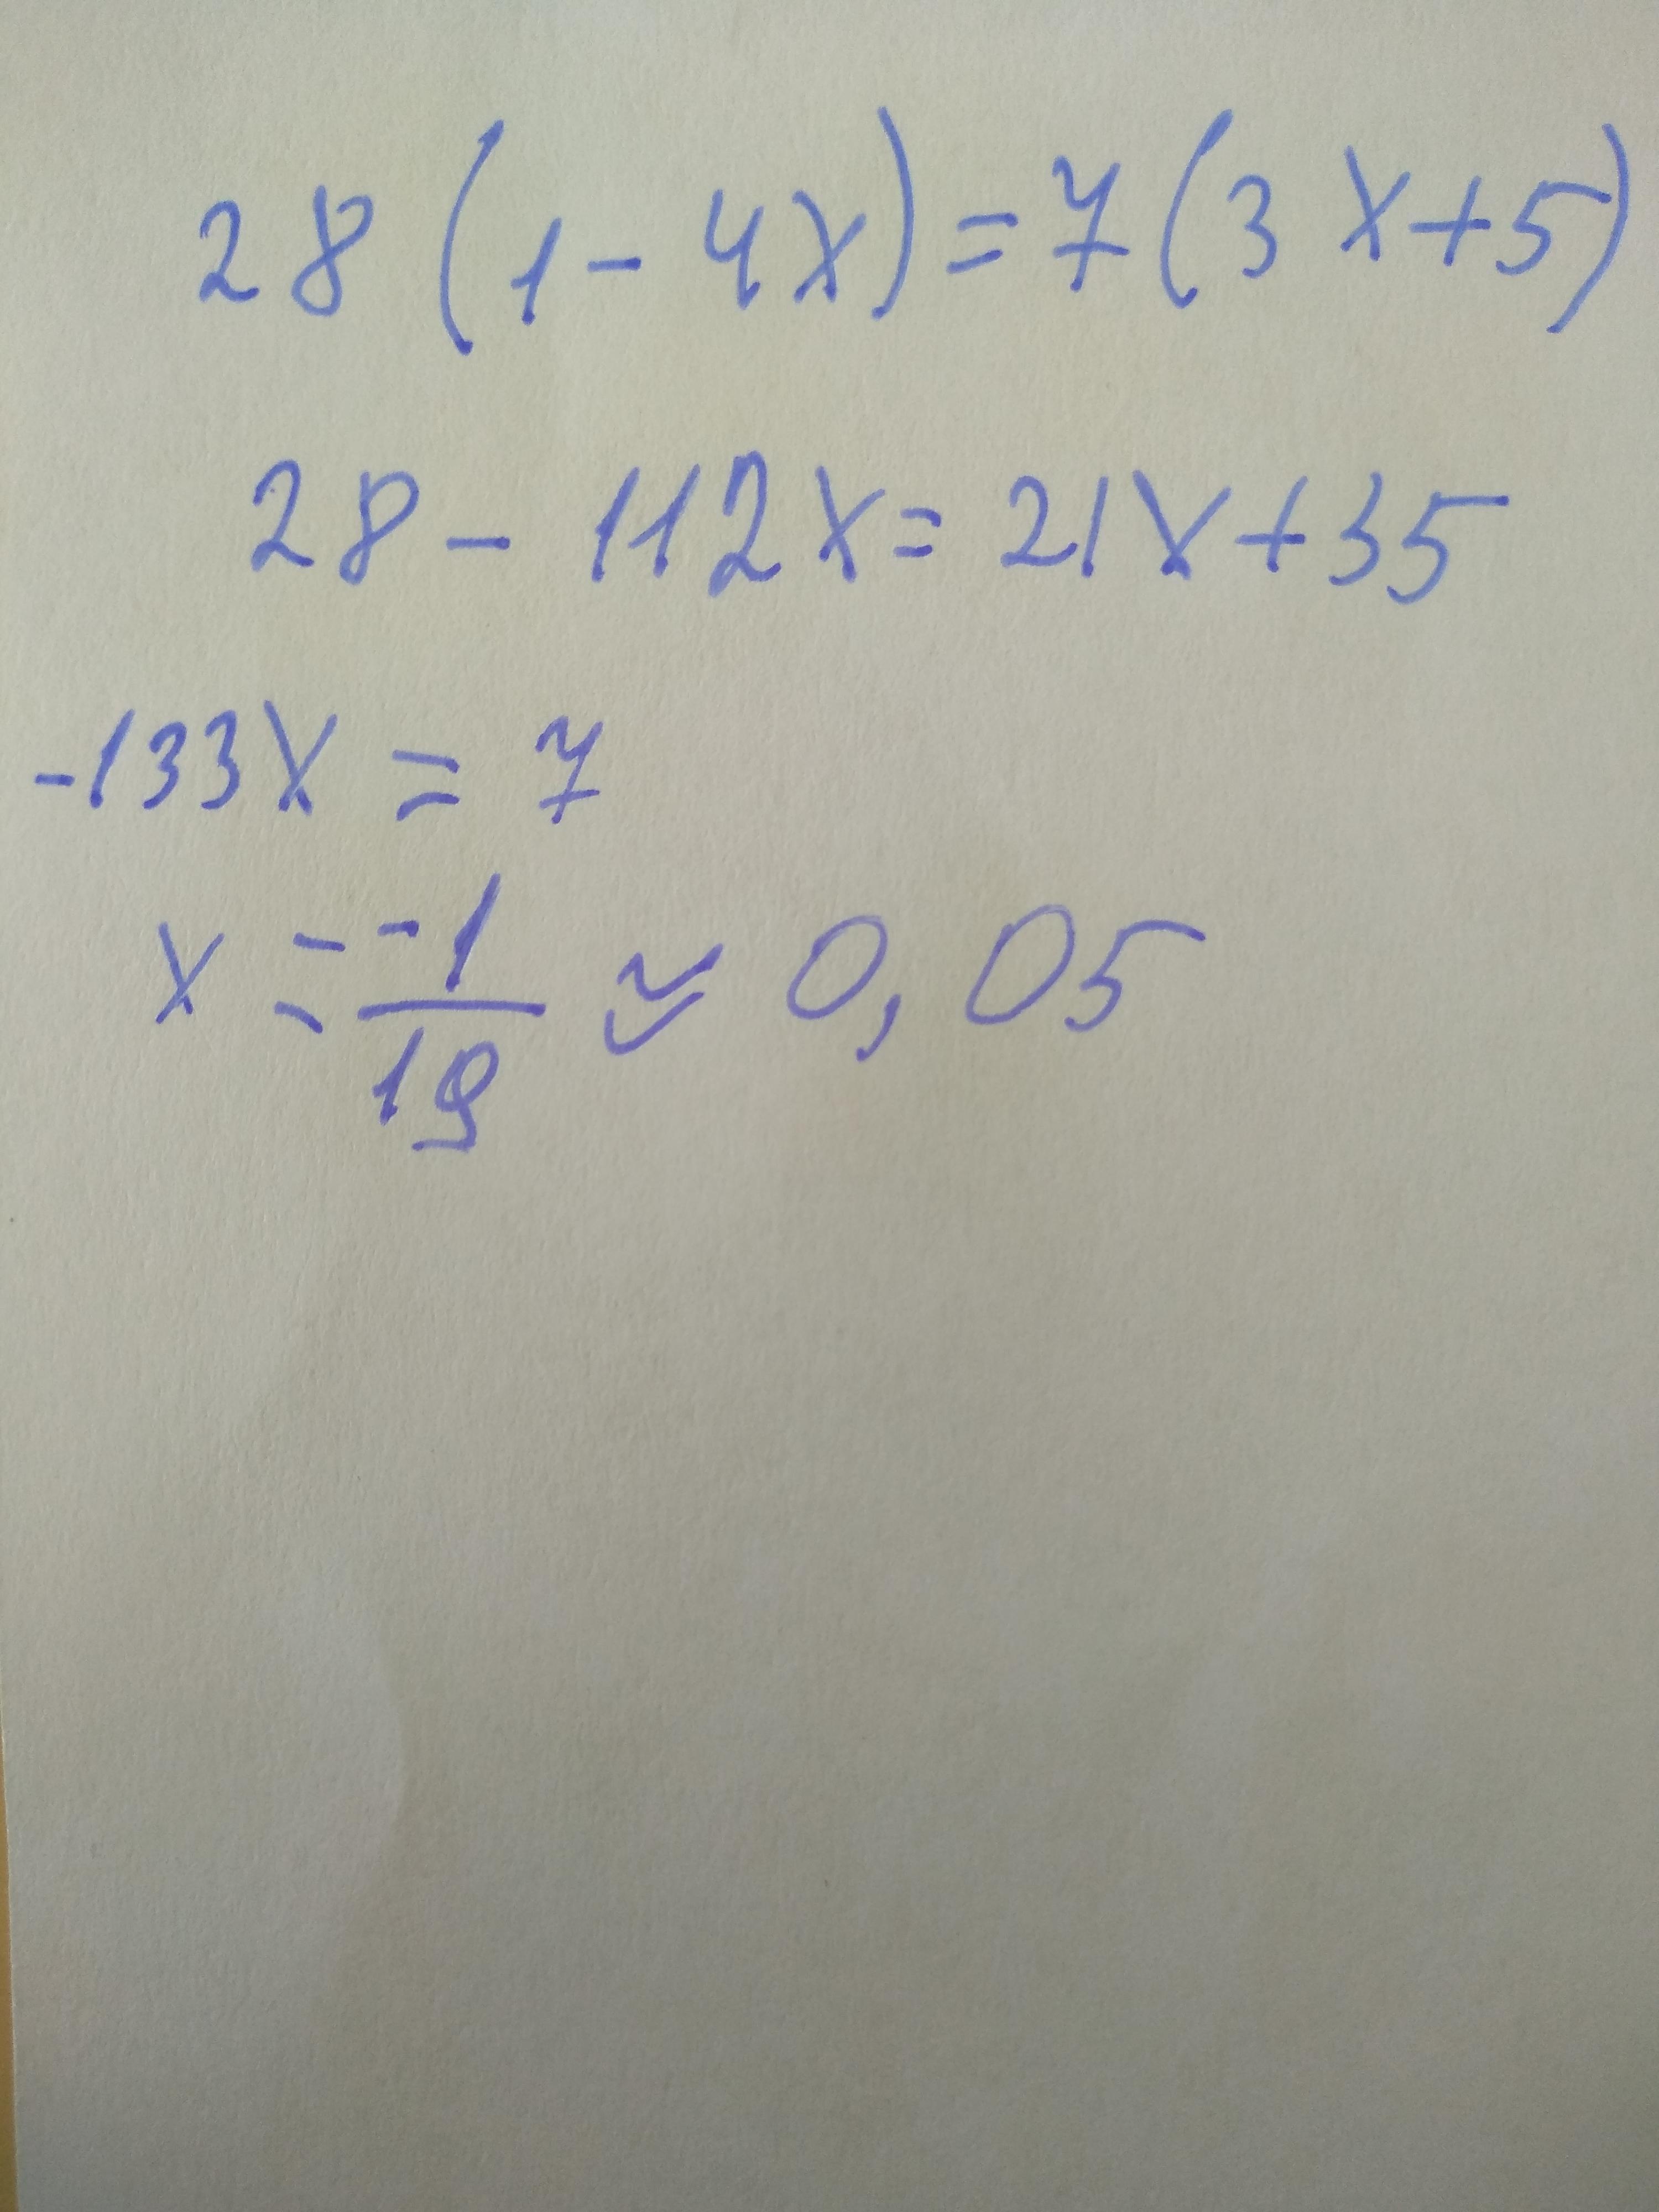 28(1-4x)=7(3x+5)
28-112x=21x+35
-133x=7
x=-1/19≈0,05